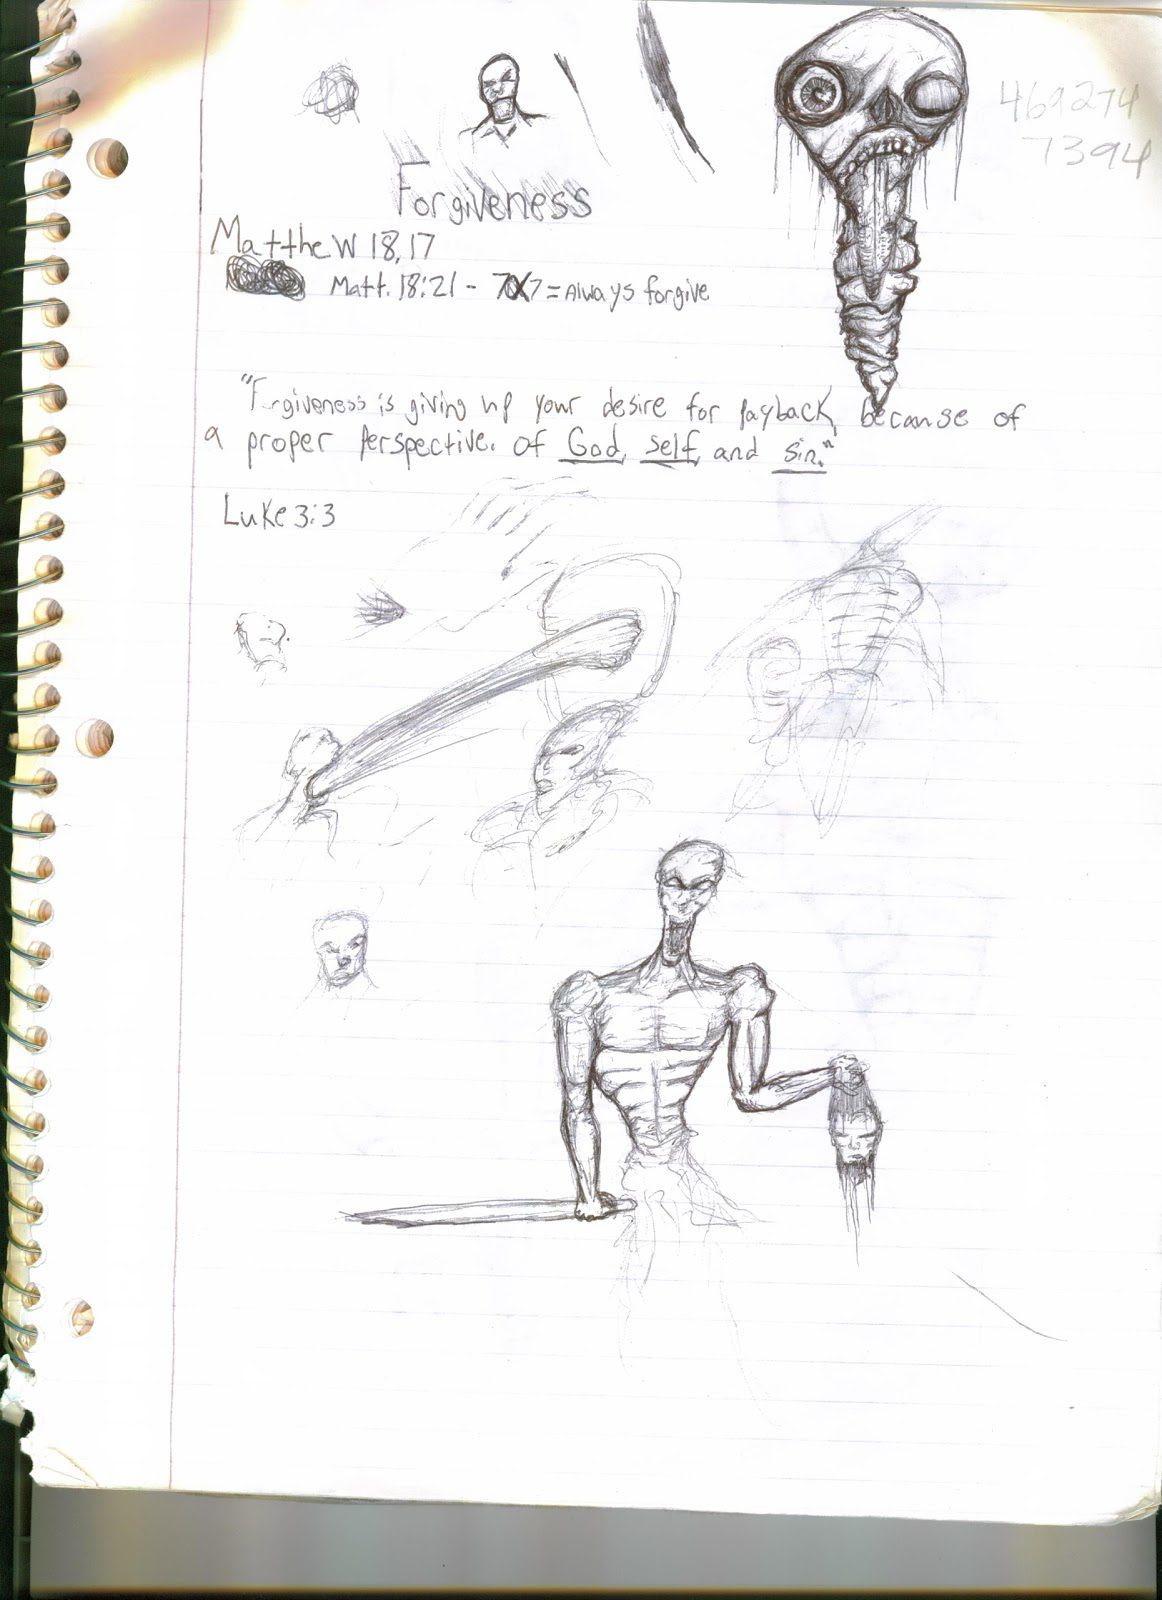 469274
7394
Forgiveness
Matthew 18,17
Matt. 18:21 - 7X7 = Always forgive
"Forgiveness is giving up your desire for payback, because of
a proper perspective. of God, self, and sin."
Luke 3:3